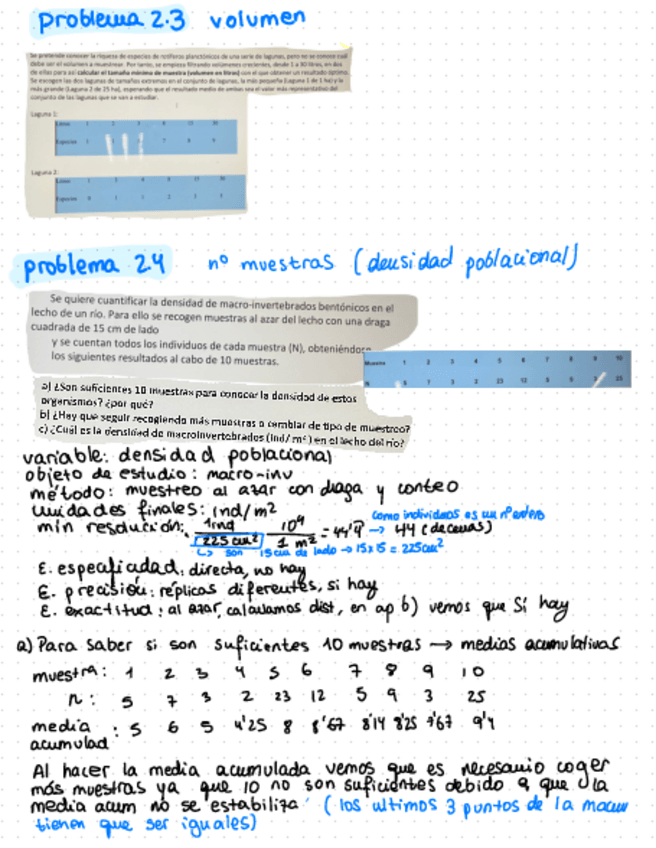 problema 2.3 volumen
Se pretende conocer la riqueza de especies de rotíferos planctónicos de una serie de lagunas, pero no se conoce cuál
debe ser el volumen a muestrear. Por tanto, se empieza filtrando volúmenes crecientes, desde 1 a 30 litros, en dos
de ellas para así calcular el tamaño mínimo de muestra (volumen en litros) con el que obtener un resultado óptimo.
Se escogen las dos lagunas de tamaños extremos en el conjunto de lagunas, la más pequeña (Laguna 1 de 1 ha) y la
más grande (Laguna 2 de 25 ha), esperando que el resultado medio de ambas sea el valor más representativo del
conjunto de las lagunas que se van a estudiar.
Laguna 1:
Litros
Especies
Laguna 2:
Litros
Especies
problema 2.4 nº muestras (densidad poblacional)
Se quiere cuantificar la densidad de macro-invertebrados bentónicos en el
lecho de un río. Para ello se recogen muestras al azar del lecho con una draga
cuadrada de 15 cm de lado
y se cuentan todos los individuos de cada muestra (N), obteniéndose
los siguientes resultados al cabo de 10 muestras.
Muestra 1 2 3 4 5 6 7 8 9 10
N 5 7 3 2 23 12 5 9 25
a) ¿Son suficientes 10 muestras para conocer la densidad de estos
organismos? ¿por qué?
b) ¿Hay que seguir recogiendo más muestras o cambiar de tipo de muestreo?
c) ¿Cuál es la densidad de macroinvertebrados (ind/m²) en el lecho del río?
variable: densidad poblacional
objeto de estudio: macro-inv
método: muestreo al azar con draga y conteo
unidades finales: ind/m²
min resolución: 1 ind / 225 cm² · 10⁴ / 1 m² = 44'4 → 44 (decenas)
como individuos es un nº entero
↳ son 15 cm de lado → 15 x 15 = 225 cm²
E. especificidad: directa, no hay
E. precisión: réplicas diferentes, si hay
E. exactitud: al azar, calculamos dist, en ap b) vemos que Sí hay
a) Para saber si son suficientes 10 muestras → medias acumulativas
muestra: 1 2 3 4 5 6 7 8 9 10
n: 5 7 3 2 23 12 5 9 3 25
media : 5 6 5 4'25 8 8'67 8'14 8'25 7'67 9'4
acumulad
Al hacer la media acumulada vemos que es necesario coger
más muestras ya que 10 no son suficientes debido a que la
media acum no se estabiliza (los ultimos 3 puntos de la macum
tienen que ser iguales)